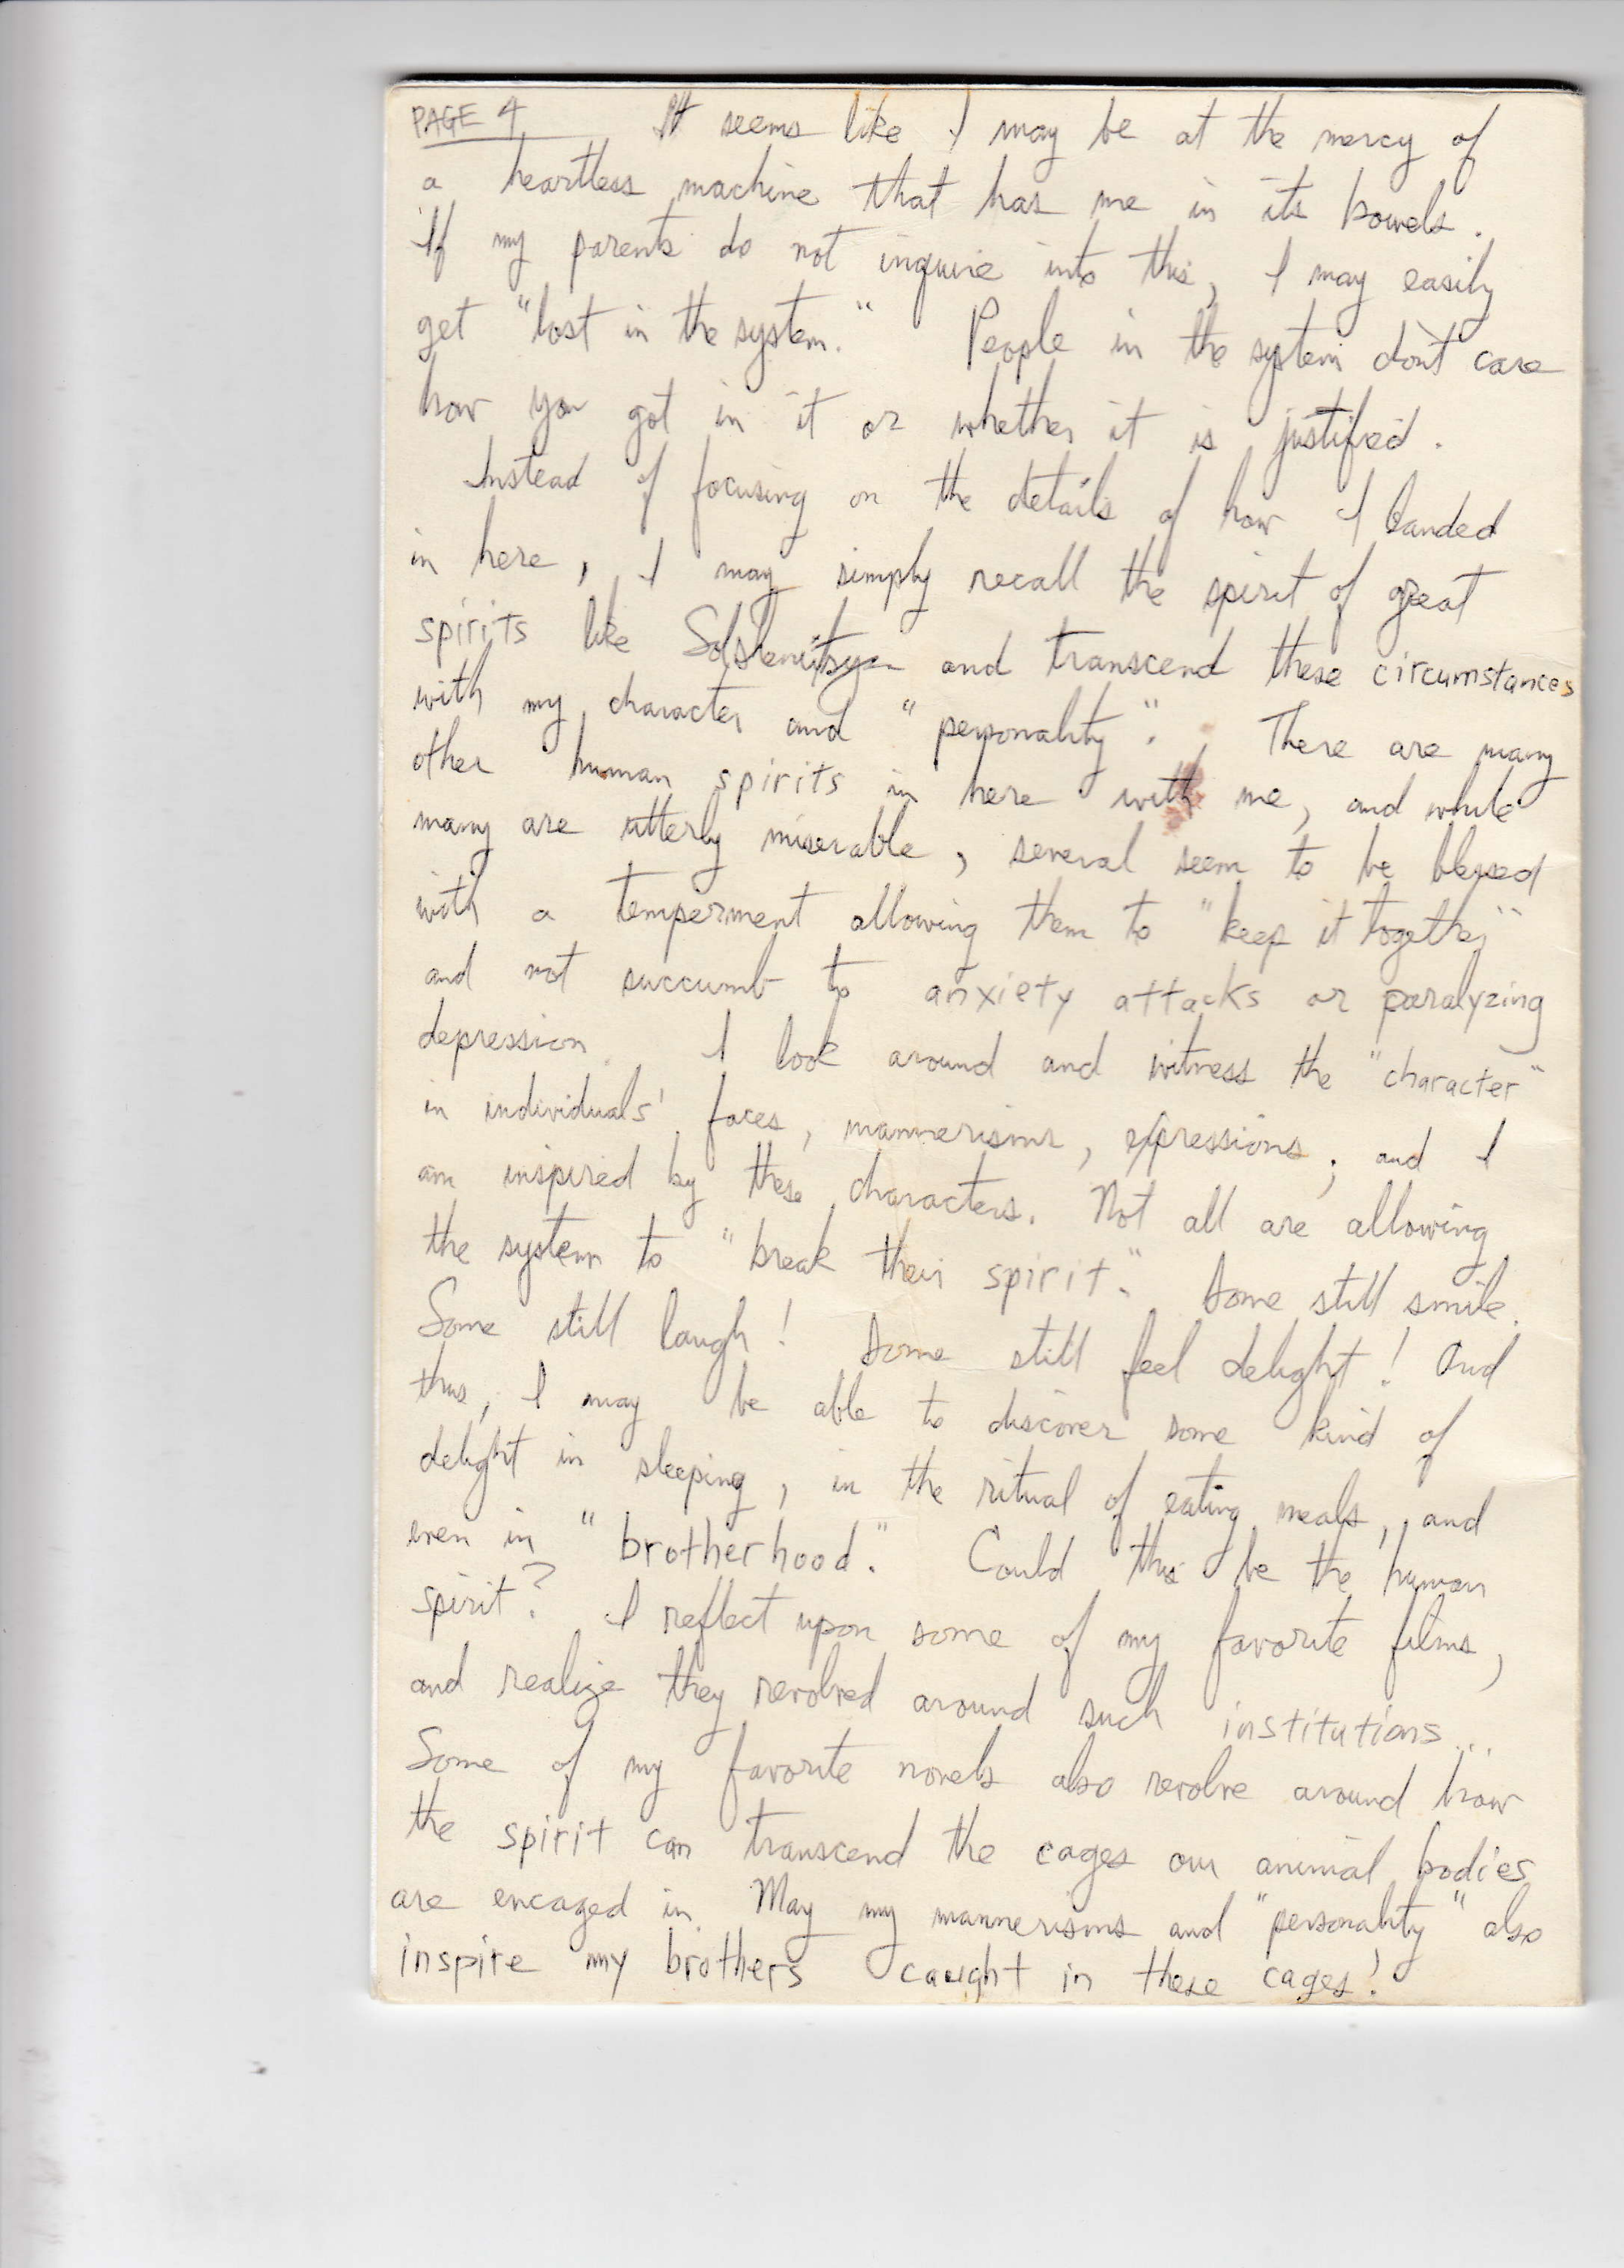 PAGE 4 It seems like I may be at the mercy of
a heartless machine that has me in its bowels.
If my parents do not inquire into this, I may easily
get "lost in the system." People in the system don't care
how you got in it or whether it is justified.
Instead of focusing on the details of how I landed
in here, I may simply recall the spirit of great
spirits like and transcend these circumstances
with my character and "personality". There are many
other human spirits in here with me, and while
many are utterly miserable, several seem to be blessed
with a temperment allowing them to "keep it together"
and not succumb to anxiety attacks or paralyzing
depression. I look around and witness the "character"
in individuals' faces, mannerisms, expressions; and I
am inspired by these characters. Not all are allowing
the system to "break their spirit." Some still smile.
Some still laugh! Some still feel delight! And
thus, I may be able to discover some kind of
delight in sleeping, in the ritual of eating meals, and
even in "brotherhood." Could this be the human
spirit? I reflect upon some of my favorite films,
and realize they revolved around such institutions...
Some of my favorite novels also revolve around how
the spirit can transcend the cages our animal bodies
are encaged in. May my mannerisms and "personality" also
inspire my brothers caught in these cages!